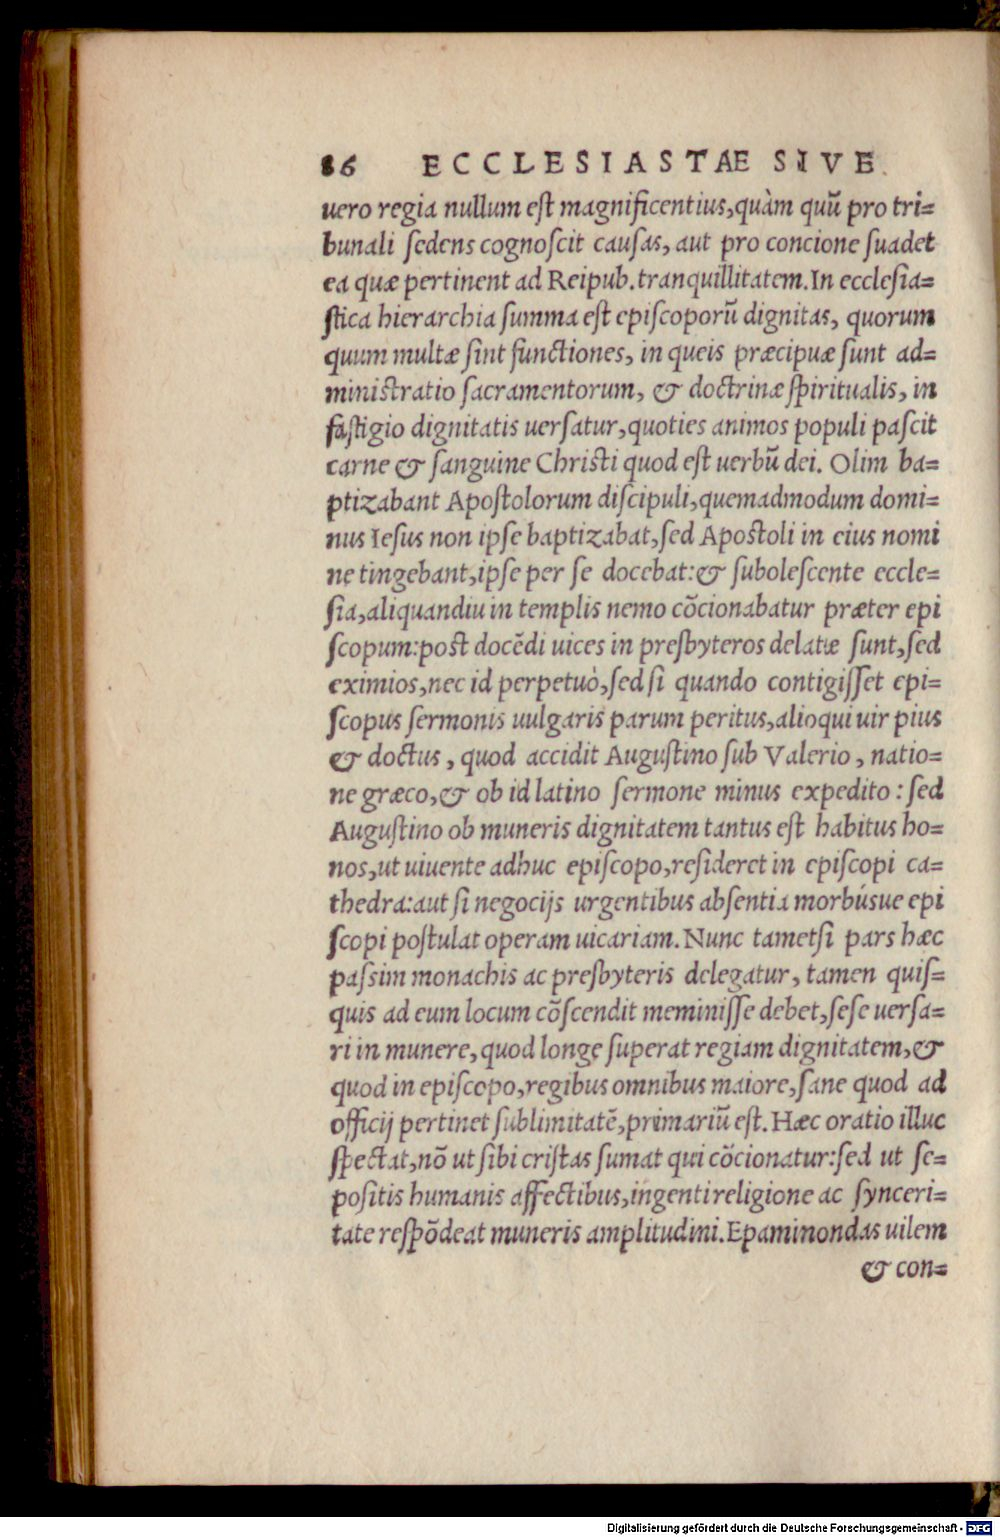 86 ECCLESIASTAE SIVE
uero regia nullum est magnificentius,quàm quũ pro tri=
bunali sedens cognoscit causas, aut pro concione suadet
ea quæ pertinent ad Reipub.tranquillitatem.In ecclesia=
stica hierarchia summa est episcoporũ dignitas, quorum
quum multæ sint functiones, in queis præcipuæ sunt ad=
ministratio sacramentorum, & doctrinæ spiritualis, in
fastigio dignitatis uersatur,quoties animos populi pascit
carne & sanguine Christi quod est uerbũ dei. Olim ba=
ptizabant Apostolorum discipuli,quemadmodum domi=
nus Iesus non ipse baptizabat,sed Apostoli in eius nomi
ne tingebant,ipse per se docebat:& subolescente eccle=
sia,aliquandiu in templis nemo cõcionabatur præter epi
scopum:post docẽdi uices in presbyteros delatæ sunt,sed
eximios,nec id perpetuò,sed si quando contigisset epi=
scopus sermonis uulgaris parum peritus,alioqui uir pius
& doctus, quod accidit Augustino sub Valerio, natio=
ne græco,& ob id latino sermone minus expedito: sed
Augustino ob muneris dignitatem tantus est habitus ho=
nos,ut uiuente adhuc episcopo,resideret in episcopi ca=
thedra:aut si negocijs urgentibus absentia morbúsue epi
scopi postulat operam uicariam.Nunc tametsi pars hæc
passim monachis ac presbyteris delegatur, tamen quis=
quis ad eum locum cõscendit meminisse debet,sese uersa=
ri in munere,quod longe superat regiam dignitatem,&
quod in episcopo,regibus omnibus maiore,sane quod ad
officij pertinet sublimitatẽ,primariũ est.Hæc oratio illuc
spectat,nõ ut sibi cristas sumat qui cõcionatur:sed ut se=
positis humanis affectibus,ingenti religione ac synceri=
tate respõdeat muneris amplitudini.Epaminondas uilem
& con=
Digitalisierung gefördert durch die Deutsche Forschungsgemeinschaft - DFG